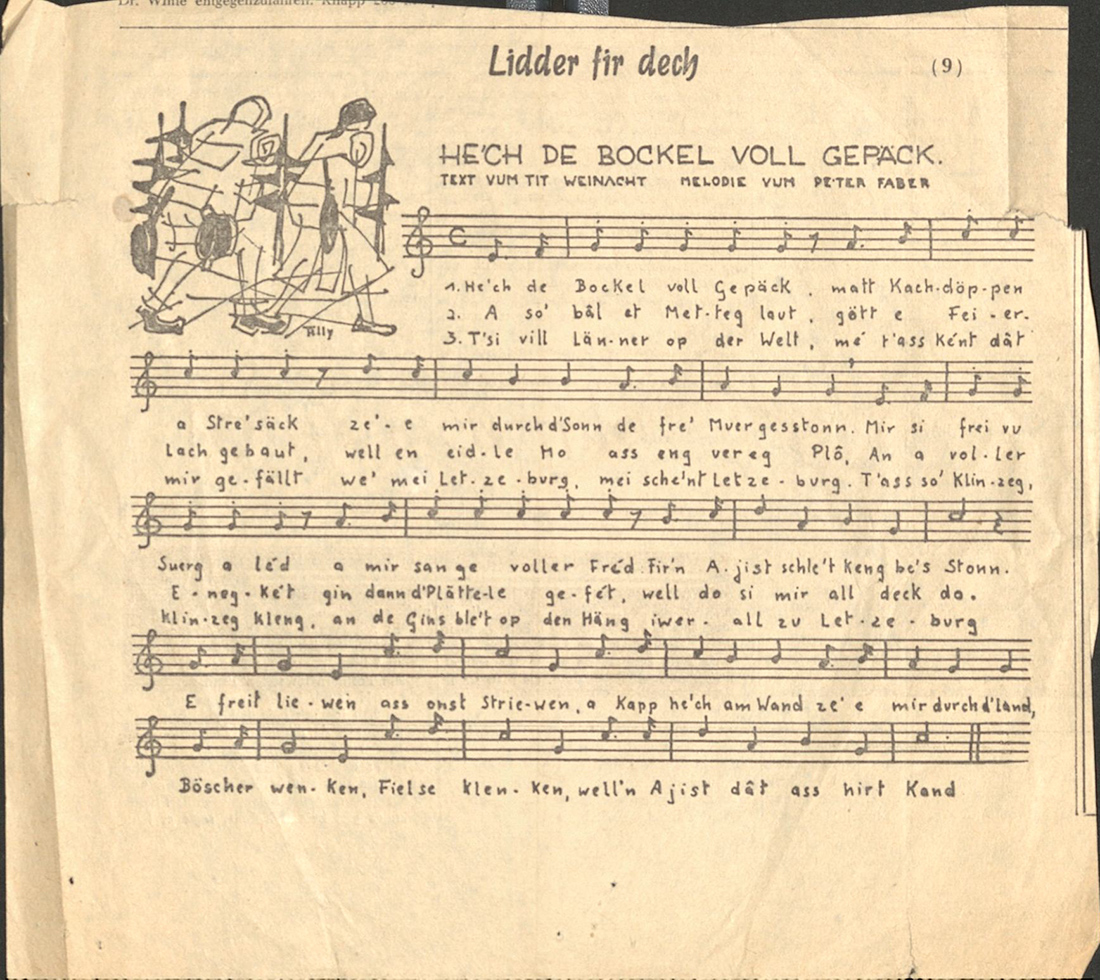 Dr. White entgegenzufahren. Knapp
Lidder fir dech
(9)
HE'CH DE BOCKEL VOLL GEPÄCK.
TEXT VUM TIT WEINACHT MELODIE VUM PE'TER FABER
1. He'ch de Bockel voll Gepäck, matt Kach-döp-pen
2. A so' bâl et Met-teg laut, gött e Fei-er-
3. T'si vill Län-ner op der Welt, mé t'ass Ként dât
Ally
a Stre'säck ze'-e mir durch d'Sonn de fre' Muergesstonn. Mir si frei vu
lach gebaut, well en eid-le Mo ass eng vereg Plô, An a vol-ler
mir ge-fällt we' mei Let-ze-burg, mei sche'nt Letze-burg. T'ass so' Klin-zeg,
Suerg a léd a mir sange voller Fréd. Fir'n A-jist schle't keng be's Stonn.
E-neg-két gin dann d'Plätte-le ge-fét, well do si mir all deck do.
klin-zeg kleng, an de Gins ble't op den Häng iwer-all zu Let-ze-burg
E freit lie-wen ass onst Strie-wen, a Kapp he'ch am Wand ze'e mir durch d'land,
Böscher wen-ken, Fielse klen-ken, well'n Ajist dât ass hirt Kand